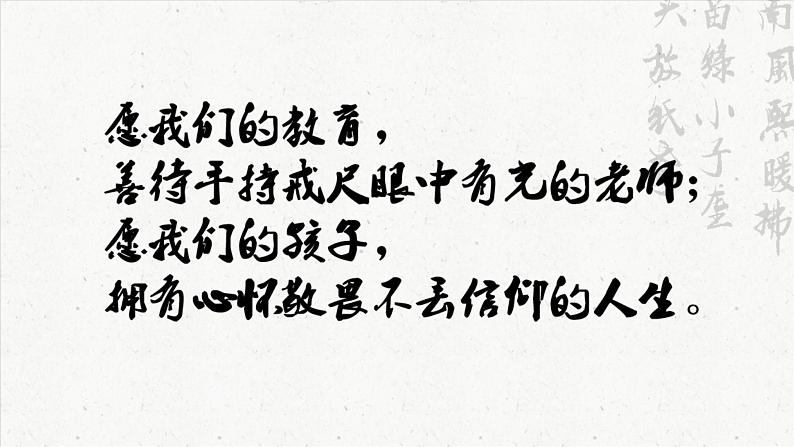 愿我们的教育，
善待手持戒尺眼中有光的老师；
愿我们的孩子，
拥有心怀敬畏不丢信仰的人生。
南風熙暖拂
苗綠小子童
头放紙